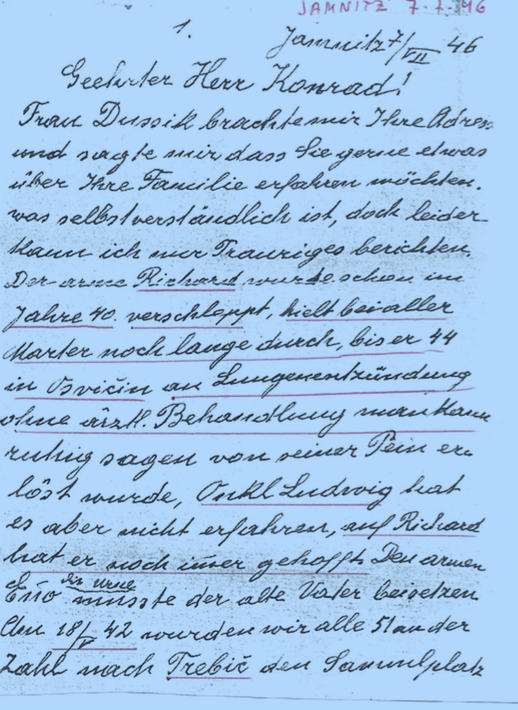 JAMNITZ 7-7-46
1.
Jamnitz 7/VII 46
Geehrter Herr Konrad!
Frau Dussik brachte mir Ihre Adres-
und sagte mir dass Sie gerne etwas
über Ihre Familie erfahren möchten.
was selbstverständlich ist, doch leider
kann ich nur Trauriges berichten.
Der arme Richard wurde schon im
Jahre 40 verschleppt, hielt bei aller
Marter noch lange durch, bis er 44
in Osvičin an Lungenentzündung
ohne ärztl. Behandlung man kann
ruhig sagen von seiner Pein er-
löst wurde, Onkl Ludwig hat
es aber nicht erfahren, auf Richard
hat er noch imer gehofft. Den armen
die Urne
musste der alte Vater beisetzen
Am 18/V 42 wurden wir alle 51 an der
Zahl nach Trebič den Sammlplatz